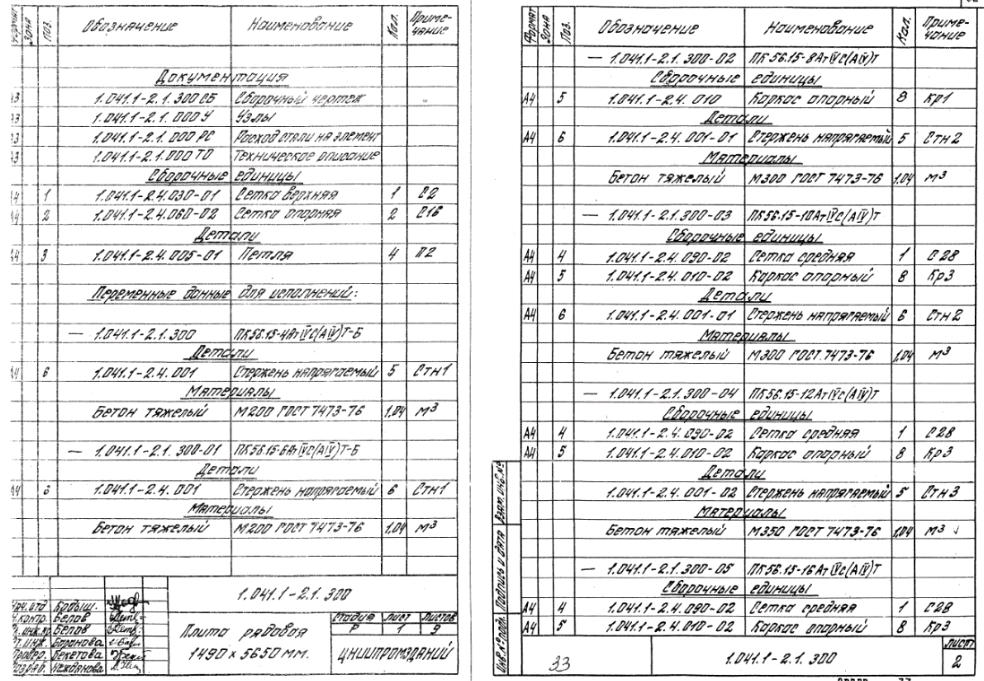 Формат Зона Поз. Обозначение Наименование Кол. Примечание
Документация
А3 1.041.1-2.1.300 СБ Сборочный чертеж
А3 1.041.1-2.1.000 У Узлы
А3 1.041.1-2.1.000 РС Расход стали на элемент
А3 1.041.1-2.1.000 ТО Техническое описание
Сборочные единицы
А4 1 1.041.1-2.4.030-01 Сетка верхняя 1 С2
А4 2 1.041.1-2.4.060-02 Сетка опорная 2 С16
Детали
А4 3 1.041.1-2.4.005-01 Петля 4 П2
Переменные данные для исполнений:
— 1.041.1-2.1.300 ПК56.15-4АтIVС(АIV)Т-Б
Детали
А4 6 1.041.1-2.4.001 Стержень напрягаемый 5 Стн1
Материалы
Бетон тяжелый М200 ГОСТ 7473-76 1,04 м³
— 1.041.1-2.1.300-01 ПК56.15-6АтIVС(АIV)Т-Б
Детали
А4 6 1.041.1-2.4.001 Стержень напрягаемый 6 Стн1
Материалы
Бетон тяжелый М200 ГОСТ 7473-76 1,04 м³
1.041.1-2.1.300
Нач. отд.
Н. контр. Белов
Белов
Баранова
Бекетова
Нежданова
Плита рядовая
1490 x 5650 мм.
Стадия Лист Листов
Р 1 9
ЦНИИПРОМЗДАНИЙ
Формат Зона Поз. Обозначение Наименование Кол. Примечание
— 1.041.1-2.1.300-02 ПК56.15-8АтIVС(АIV)Т
Сборочные единицы
А4 5 1.041.1-2.4.010 Каркас опорный 8 Кр1
Детали
А4 6 1.041.1-2.4.001-01 Стержень напрягаемый 5 Стн2
Материалы
Бетон тяжелый М300 ГОСТ 7473-76 1,04 м³
— 1.041.1-2.1.300-03 ПК56.15-10АтIVС(АIV)Т
Сборочные единицы
А4 4 1.041.1-2.4.090-02 Сетка средняя 1 С28
А4 5 1.041.1-2.4.010-02 Каркас опорный 8 Кр3
Детали
А4 6 1.041.1-2.4.001-01 Стержень напрягаемый 6 Стн2
Материалы
Бетон тяжелый М300 ГОСТ 7473-76 1,04 м³
— 1.041.1-2.1.300-04 ПК56.15-12АтIVС(АIV)Т
Сборочные единицы
А4 4 1.041.1-2.4.090-02 Сетка средняя 1 С28
А4 5 1.041.1-2.4.010-02 Каркас опорный 8 Кр3
Детали
1.041.1-2.4.001-02 Стержень напрягаемый 5 Стн3
Материалы
Бетон тяжелый М350 ГОСТ 7473-76 1,04 м³
— 1.041.1-2.1.300-05 ПК56.15-16АтIVС(АIV)Т
Сборочные единицы
А4 4 1.041.1-2.4.090-02 Сетка средняя 1 С28
А4 5 1.041.1-2.4.010-02 Каркас опорный 8 Кр3
Инв.№ подл. Подпись и дата Взам. инв.№
33
1.041.1-2.1.300
Лист
2